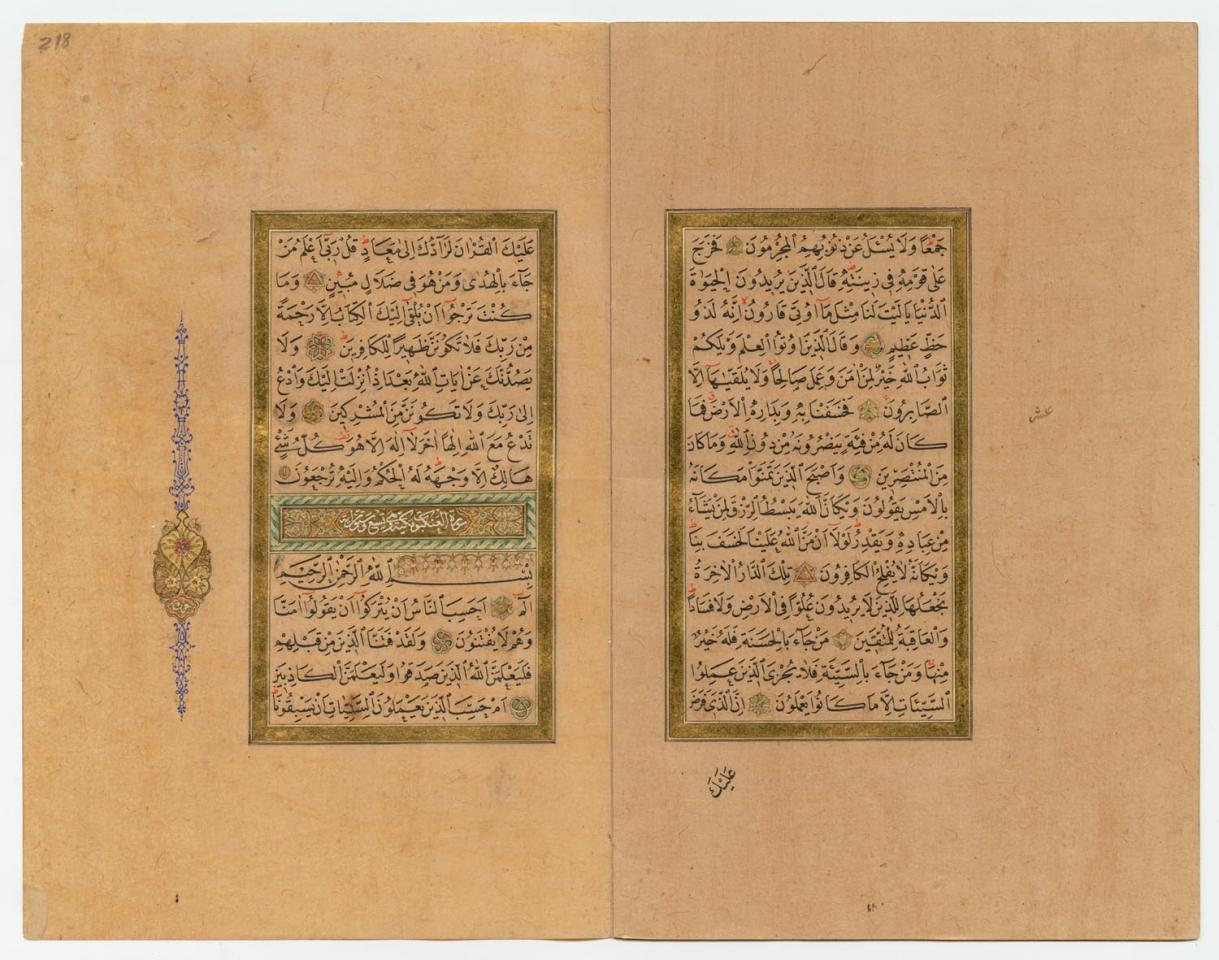 جَمْعًا وَلَا يُسْـَٔلُ عَنْ ذُنُوبِهِمُ الْمُجْرِمُونَ فَخَرَجَ
عَلٰى قَوْمِهِ فِى زِينَتِهِ قَالَ الَّذِينَ يُرِيدُونَ الْحَيٰوةَ
الدُّنْيَا يَالَيْتَ لَنَا مِثْلَ مَا اُوتِىَ قَارُونُ اِنَّهُ لَذُو
حَظٍّ عَظِيمٍ وَقَالَ الَّذِينَ اُوتُوا الْعِلْمَ وَيْلَكُمْ
ثَوَابُ اللهِ خَيْرٌ لِمَنْ اٰمَنَ وَعَمِلَ صَالِحًا وَلَا يُلَقّٰيهَا اِلَّا
الصَّابِرُونَ فَخَسَفْنَا بِهِ وَبِدَارِهِ الْاَرْضَ فَمَا
كَانَ لَهُ مِنْ فِئَةٍ يَنْصُرُونَهُ مِنْ دُونِ اللهِ وَمَا كَانَ
مِنَ الْمُنْتَصِرِينَ وَاَصْبَحَ الَّذِينَ تَمَنَّوْا مَكَانَهُ
بِالْاَمْسِ يَقُولُونَ وَيْكَاَنَّ اللهَ يَبْسُطُ الرِّزْقَ لِمَنْ يَشَآءُ
مِنْ عِبَادِهِ وَيَقْدِرُ لَوْلَا اَنْ مَنَّ اللهُ عَلَيْنَا لَخَسَفَ بِنَا
وَيْكَاَنَّهُ لَا يُفْلِحُ الْكَافِرُونَ تِلْكَ الدَّارُ الْاٰخِرَةُ
نَجْعَلُهَا لِلَّذِينَ لَا يُرِيدُونَ عُلُوًّا فِى الْاَرْضِ وَلَا فَسَادًا
وَالْعَاقِبَةُ لِلْمُتَّقِينَ مَنْ جَآءَ بِالْحَسَنَةِ فَلَهُ خَيْرٌ
مِنْهَا وَمَنْ جَآءَ بِالسَّيِّئَةِ فَلَا يُجْزَى الَّذِينَ عَمِلُوا
السَّيِّئَاتِ اِلَّا مَا كَانُوا يَعْمَلُونَ اِنَّ الَّذِى فَرَضَ
عَلَيْكَ
عشر
218
عَلَيْكَ الْقُرْاٰنَ لَرَآدُّكَ اِلٰى مَعَادٍ قُلْ رَبِّى اَعْلَمُ مَنْ
جَآءَ بِالْهُدٰى وَمَنْ هُوَ فِى ضَلَالٍ مُبِينٍ وَمَا
كُنْتَ تَرْجُوا اَنْ يُلْقٰى اِلَيْكَ الْكِتَابُ اِلَّا رَحْمَةً
مِنْ رَبِّكَ فَلَا تَكُونَنَّ ظَهِيرًا لِلْكَافِرِينَ وَلَا
يَصُدُّنَّكَ عَنْ اٰيَاتِ اللهِ بَعْدَ اِذْ اُنْزِلَتْ اِلَيْكَ وَادْعُ
اِلٰى رَبِّكَ وَلَا تَكُونَنَّ مِنَ الْمُشْرِكِينَ وَلَا
تَدْعُ مَعَ اللهِ اِلٰهًا اٰخَرَ لَا اِلٰهَ اِلَّا هُوَ كُلُّ شَىْءٍ
هَالِكٌ اِلَّا وَجْهَهُ لَهُ الْحُكْمُ وَاِلَيْهِ تُرْجَعُونَ
سورة العنكبوت مكية وهى تسع وستون اية
بِسْمِ اللهِ الرَّحْمٰنِ الرَّحِيمِ
الٓمٓ اَحَسِبَ النَّاسُ اَنْ يُتْرَكُوا اَنْ يَقُولُوا اٰمَنَّا
وَهُمْ لَا يُفْتَنُونَ وَلَقَدْ فَتَنَّا الَّذِينَ مِنْ قَبْلِهِمْ
فَلَيَعْلَمَنَّ اللهُ الَّذِينَ صَدَقُوا وَلَيَعْلَمَنَّ الْكَاذِبِينَ
اَمْ حَسِبَ الَّذِينَ يَعْمَلُونَ السَّيِّئَاتِ اَنْ يَسْبِقُونَا